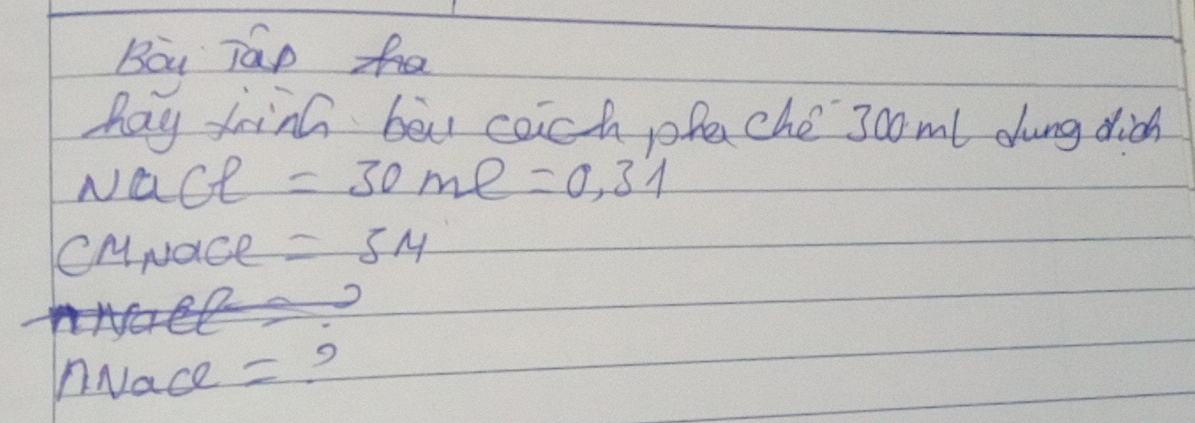 Bài Tập
hãy trình bày cách pha chế 300ml dung dịch
NaCl = 30 ml = 0,31
CM NaCl = 5M
nNaCl = ?
nNaCl = ?